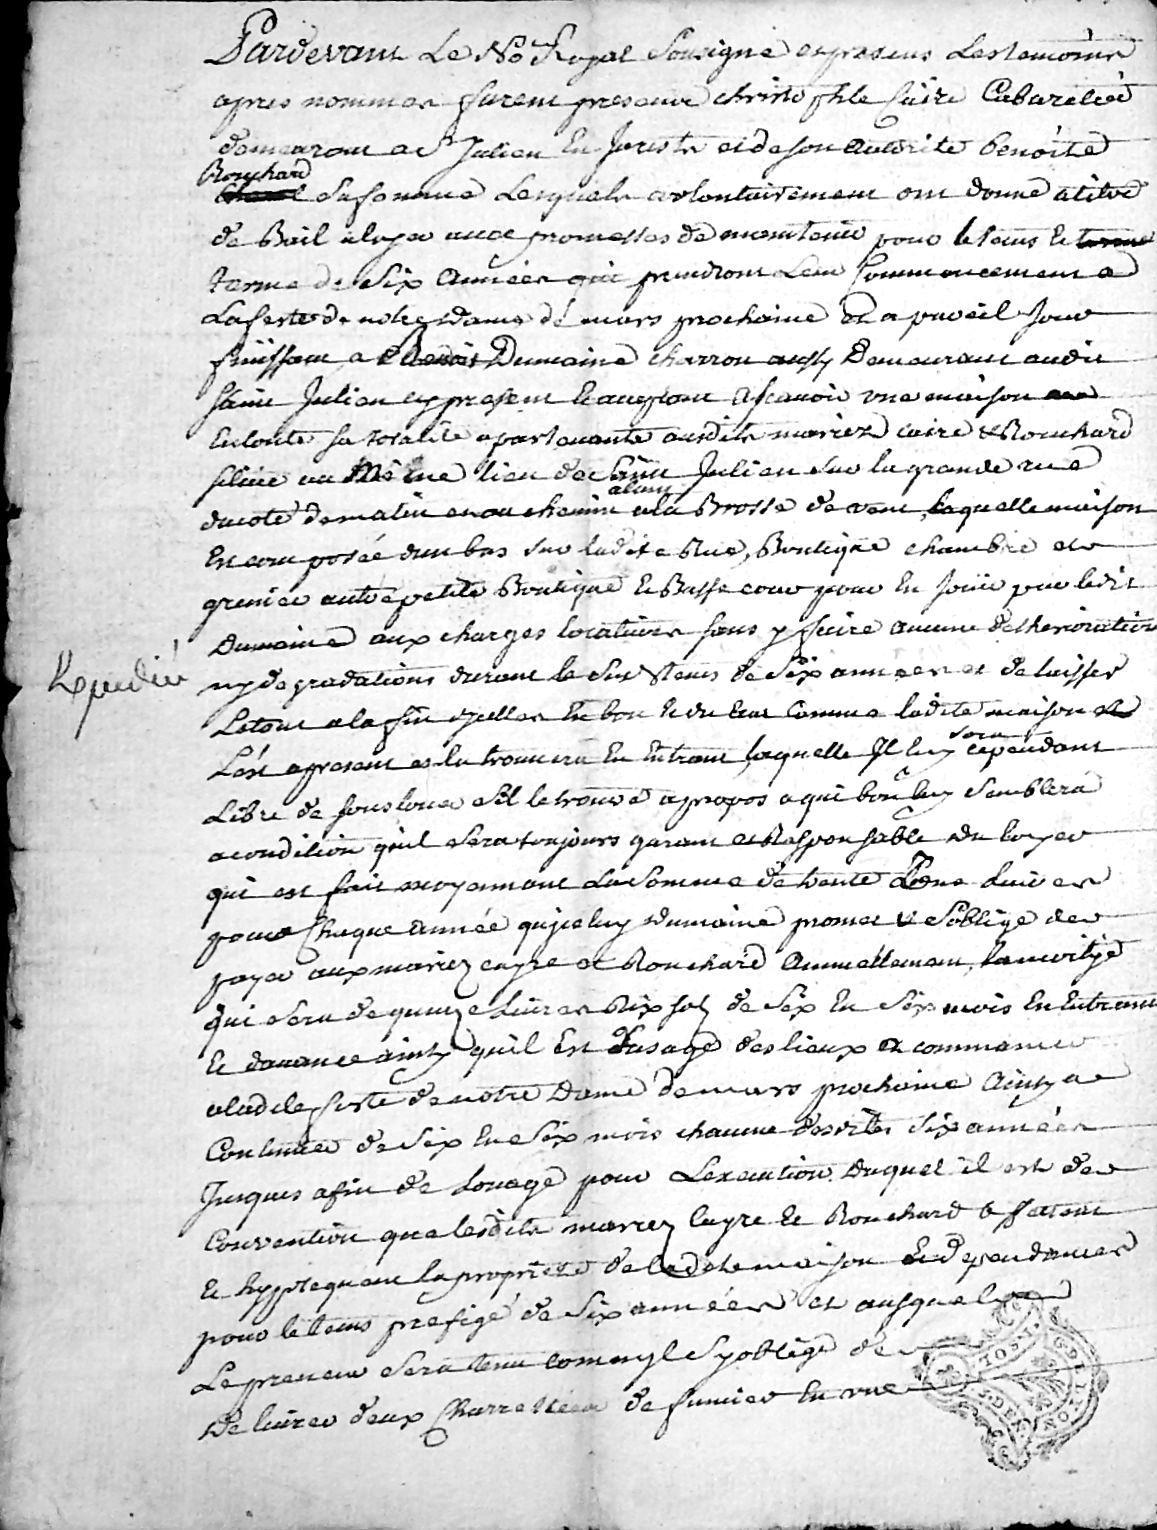 Pardevant Le No Royal Sousigné et presens Les temoins
apres nommes furent presents christophle Caire Cabaretié
demeurant a St Julien En Jarests et de son autorite benoite
Rouchard
sa femme Lesquels volontairement ont donné a titre
de Bail a loyer avec promesses de maintenir pour le tems et
terme de Six Années qui prendront Leur Commencement a
La feste de notre Dame de mars prochaine et a pareil Jour
finissant a Dumaine charron aussy Demeurant audit
Saint Julien cy present et acceptant Ascavoir une maison
En toute sa totalite apartenante ausdits mariez caire & Rouchard
scituée au Même lieu de Saint Julien sur la grande rue
du coté de matin et au chemin alant a la Brosse de vent, laquelle maison
Est composée dun bas sur ladite Rue, Boutique chambre et
grenier autre petite Boutique et Basse cour pour En Jouir par ledit
Dumaine aux charges locatives sans y faire aucune detherioration
Expedié
ny degradations durant le Sus tems de Six années et de laisser
Letout a la fin dycelles En bon et du Etat Comme ladite maison
L'est apresent et la trouvera En Entrant, laquelle Il luy sera cependant
Libre de souslouer Sil le trouve apropos a qui bon luy Semblera
acondition quil Sera toujours garant et Responsable du loyer
qui est fait moyennant La Somme de trente Une Livres
pour Chaque Année quiceluy Dumaine promet et Soblige de
payer aux mariez cayre et Rouchard Annuellement, la moitiyé
qui Sera de quinze Livres Dix sols de Six En Six mois En Entrant
et davance ainsy quil Est d'usage des lieux et commencer
a ladite feste de notre Dame de mars prochaine Ainsy a
Continuer de Six En Six mois chacune desdites Six années
Jusques a fin de Louage pour Lexecution Duquel il est de
Convention que lesdits mariez Cayre et Rouchard affectent
et hypptequent la proprieté de ladite maison et dependances
pour le tems prefigé de Six années et ausquels
Le preneur Sera tenu comme yl Syoblige de
De livrer deux Charretées de fumier En une